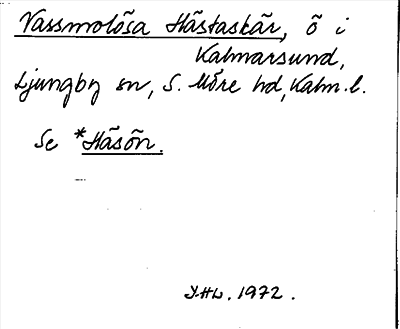 Vassmolösa Hästaskär, ö i
Kalmarsund,
Ljungby sn, S. Möre hd, Kalm. l.
Se *Häsön.
Y.HL. 1972.